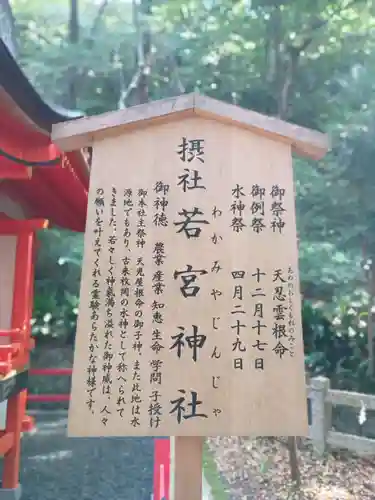 御祭神 天忍雲根命
あめのおしくもねのみこと
御例祭 十二月十七日
水神祭 四月二十九日
摂社 若宮神社
わかみやじんじゃ
御神徳 農業 産業 知恵 生命 学問 子授け
御本社主祭神 天児屋根命の御子神、または水
源地でもあり、古来枚岡の水神として称へられて
きました。若々しく神氣満ち溢れた御神威は、人々
の願いを叶えてくれる霊験あらたかな神様です。